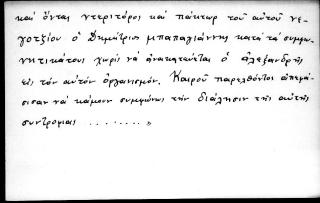 καὶ ὄντας ντεριτόρος καὶ πάκτωρ τοῦ αὐτοῦ νε-
γοτζίου ὁ Δημήτριος μπαπαγιάννης κατὰ τὰ συμφω-
νητικάτους χωρὶς νὰ ἀνακατεύεται ὁ ἀλεξανδρῆς
εἰς τὸν αὐτὸν ὀργανισμόν. Καιροῦ παρελθόντος ἀπεφά-
σισαν νὰ κάμουν συμφώνως τὴν διάλησιν τῆς αὐτῆς
συντροφιας ........ »